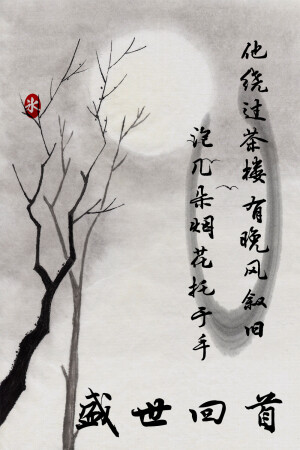 他绕过茶楼有晚风叙旧
泡几朵烟花托于手
盛世回首
氷